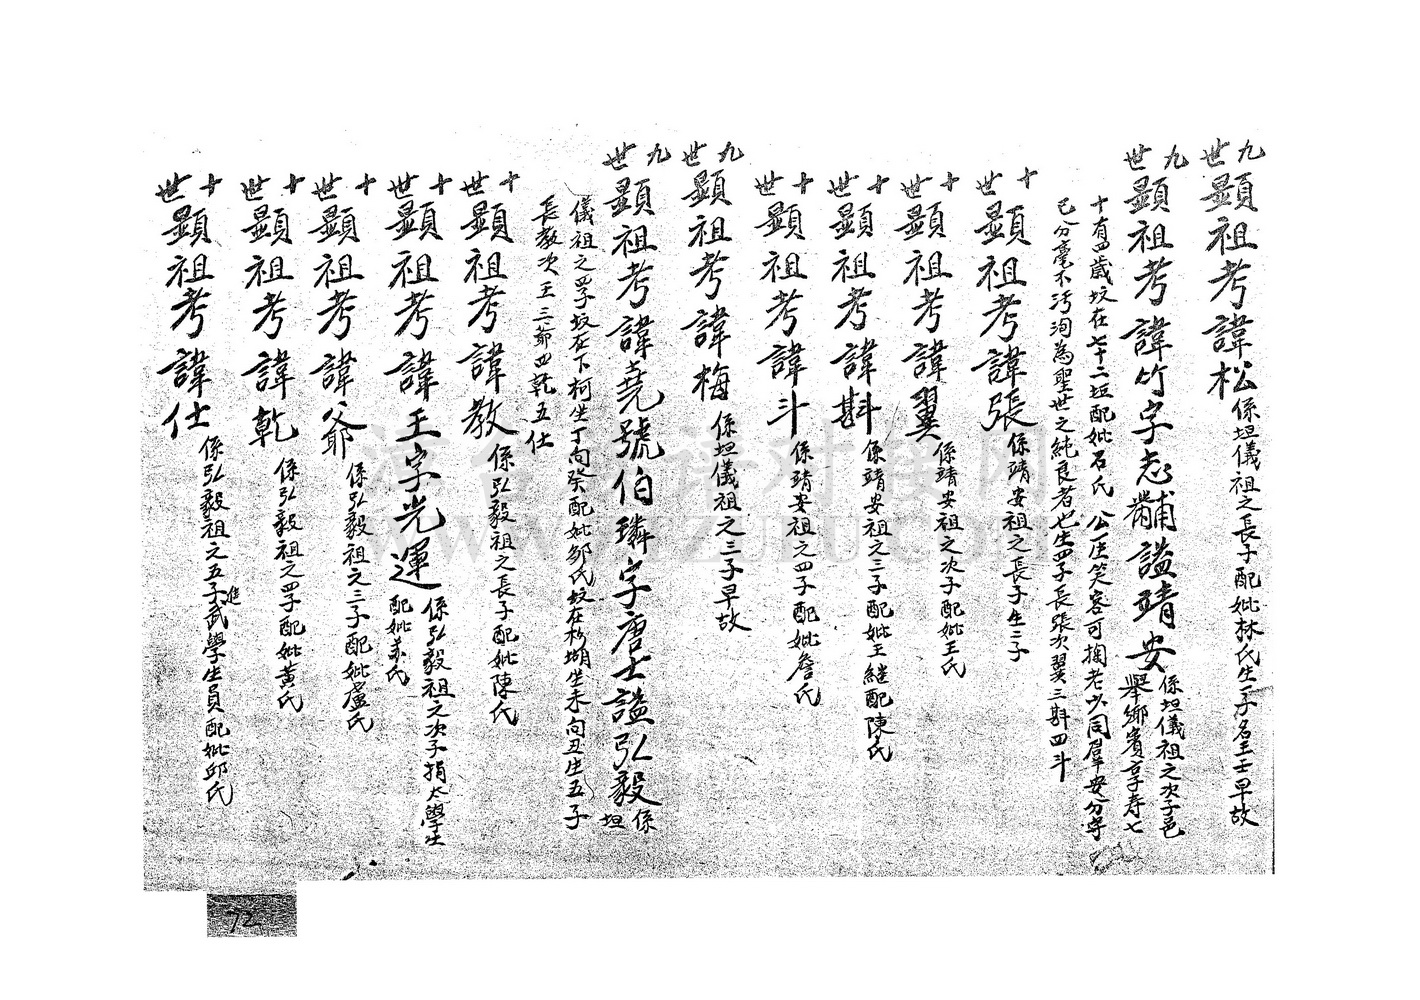 九世顯祖考諱松係坦儀祖之長子配妣林氏生一子名王士早故
九世顯祖考諱竹字志黼謚靖安係坦儀祖之次子邑
舉鄉賓享寿七
十有四歲坟在七十二坵配妣石氏公一生笑容可掬老少同羣安分守
己分毫不污洵為聖世之純良者也生四子長張次翼三斟四斗
十世顯祖考諱張係靖安祖之長子生二子
十世顯祖考諱翼係靖安祖之次子配妣王氏
十世顯祖考諱斟係靖安祖之三子配妣王継配陳氏
十世顯祖考諱斗係靖安祖之四子配妣詹氏
九世顯祖考諱梅係坦儀祖之三子早故
九世顯祖考諱堯號伯璘字唐士謚弘毅係坦
儀祖之四子坟在下柯坐丁向癸配妣鄒氏坟在杉塘坐未向丑生五子
長教次王三爺四乾五仕
十世顯祖考諱教係弘毅祖之長子配妣陳氏
十世顯祖考諱王字光運係弘毅祖之次子捐太學生
配妣氏
十世顯祖考諱爺係弘毅祖之三子配妣盧氏
十世顯祖考諱乾係弘毅祖之四子配妣黃氏
十世顯祖考諱仕係弘毅祖之五子進武學生員配妣邱氏
72